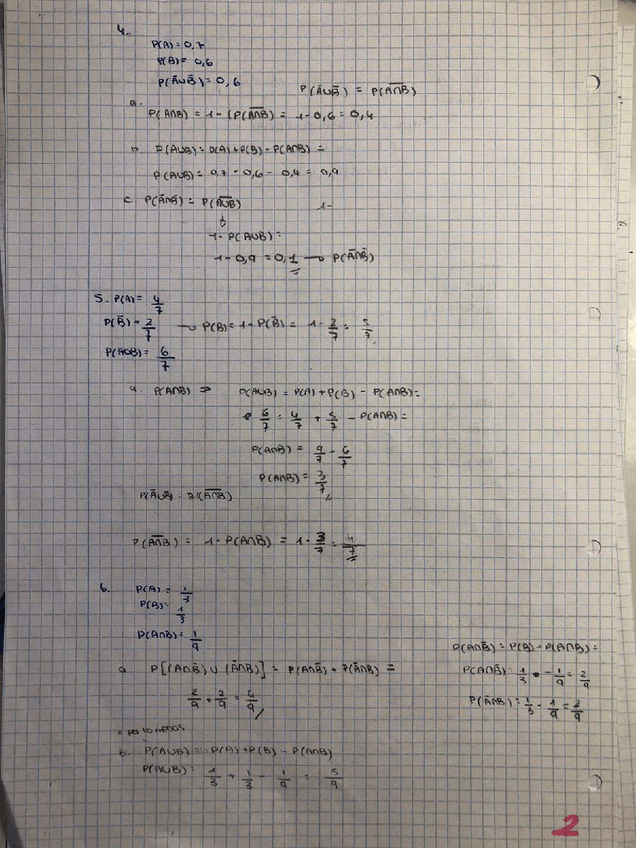 4.
P(A) = 0,7
P(B) = 0,6
P(ĀUB̄) = 0,6
P(ĀUB̄) = P(A∩B)̅
a.
P(A∩B) = 1-(P(A∩B)̅ = 1-0,6 = 0,4
b. P(AUB) = P(A)+P(B)-P(A∩B) =
P(AUB) = 0,7 + 0,6 - 0,4 = 0,9
c P(Ā∩B̄) = P(AUB)̅ 1-
1-P(AUB) =
1-0,9 = 0,1 → P(Ā∩B̄)
5. P(A) = 4/7
P(B̄) = 2/7 → P(B) = 1-P(B̄) = 1 - 2/7 = 5/7
P(AUB) = 6/7
a. P(A∩B) ⇒ P(AUB) = P(A)+P(B) - P(A∩B) =
6/7 = 4/7 + 5/7 - P(A∩B) =
P(A∩B) = 9/7 - 6/7
P(A∩B) = 3/7
P(ĀUB̄) = P(A∩B)̅
P(A∩B)̅ = 1-P(A∩B) = 1 - 3/7 = 4/7
6. P(A) = 1/3
P(B) = 1/3
P(A∩B) = 1/9
P(A∩B̄) = P(B) - P(A∩B) =
a P[(A∩B̄) U (Ā∩B)] = P(A∩B̄) + P(Ā∩B) =
P(A∩B̄) = 1/3 - 1/9 = 2/9
2/9 + 2/9 = 4/9
P(Ā∩B) = 1/3 - 1/9 = 2/9
b. P(AUB) = P(A)+P(B) - P(A∩B)
P(AUB) = 1/3 + 1/3 - 1/9 = 5/9
2